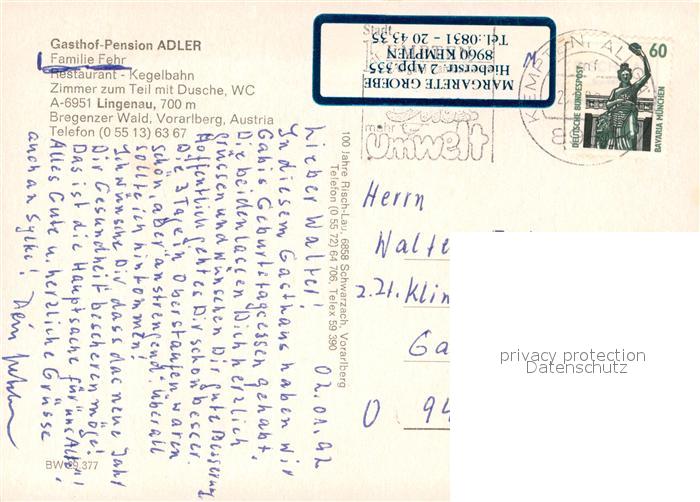 Gasthof-Pension ADLER
Familie Fehr
Restaurant - Kegelbahn
Zimmer zum Teil mit Dusche, WC
A-6951 Lingenau, 700 m
Bregenzer Wald, Vorarlberg, Austria
Telefon (0 55 13) 63 67
MARGARETE GROEBE
Hieberstr 2 App.335
8960 KEMPTEN
Tel.:0831 - 20 43 35
Stadt
mehr
Umwelt
KEMPTEN, ALLGÄU
60
DEUTSCHE BUNDESPOST
BAVARIA MÜNCHEN
100 Jahre Risch-Lau, 6858 Schwarzach, Vorarlberg
Telefon (0 55 72) 64 706, Telex 59 390
02.01.92
Lieber Walter!
In diesem Gasthaus haben wir
Gabis Geburtstagessen gehabt.
Die beiden lassen Dich herzlich
grüssen und wünschen Dir gute Besserung
Hoffentlich geht es Dir schon besser.
Die 3 Tage in Oberstaufen waren
schön, aber anstrengend. Überall
sollte ich hinkommen!
Ich wünsche Dir dass das neue Jahr
Dir Gesundheit bescheren möge!
Das ist die Hauptsache für uns Alten!
Alles Gute u. herzliche Grüsse
auch an Sylke! Dein
Herrn
Walte
2.21. Klin
Ga
O 94
privacy protection
Datenschutz
BW 89.377